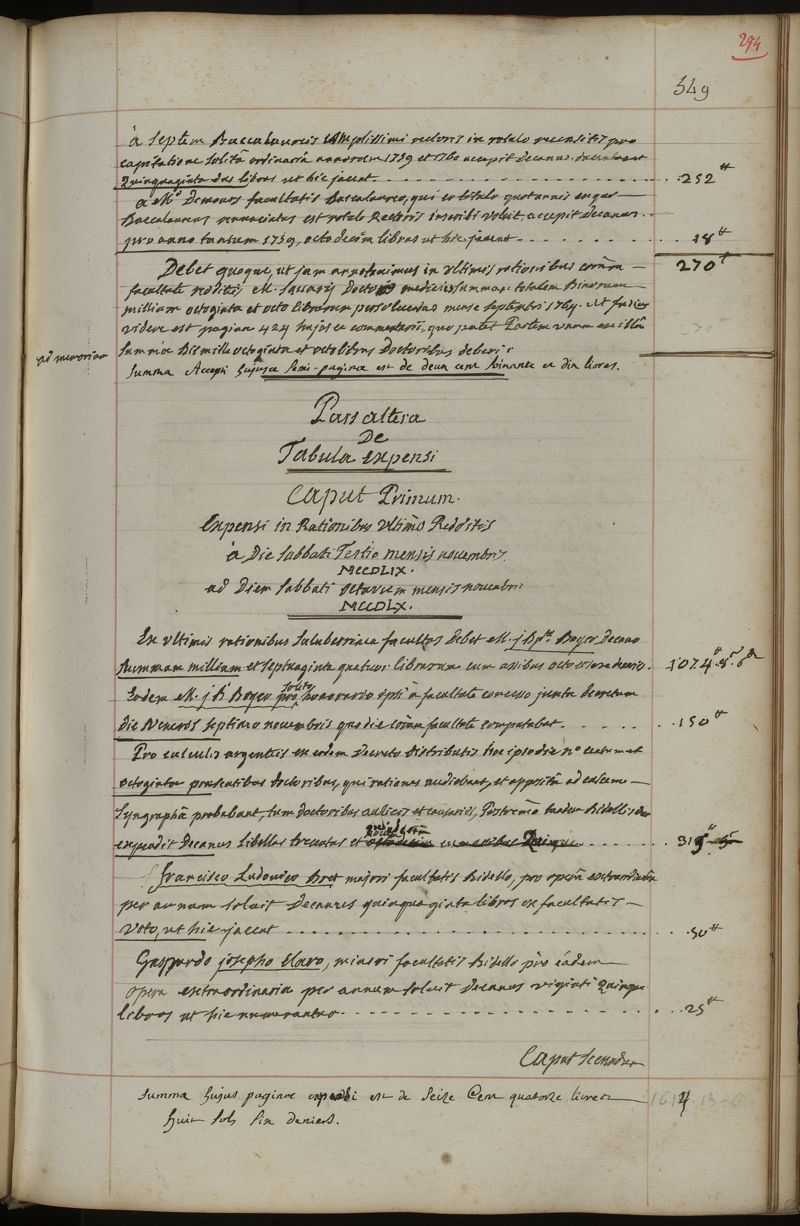 294
549
à septem Baccalaureis amplissimi rectoris in rotulo recensitis pro
capitatione solitâ ordinariâ annorum 1759 et 1760 accepit Decanus ducentas et
Quinquaginta duas libras ut hic jacent 252 ₶
a Mo. Demours facultatis Baccalaureo, qui eo titulo quotannis
Baccalaureus renunciatus est rotulo Rectoris inscribi voluit, accepit Decanus
pro anno tantum 1759, octodecim libras ut hic jacent 18 ₶
Debet quoque, ut jam annotavimus in ultimis rationibus coràm 270 ₶
facultate redditis M. doctor medicus summam totalem Binorum
millium octoginta et octo librarum persolvendas mense septembri 1764. ut
videre est paginâ 424 hujusce commentarii, quo patet Partem unam ex illâ
ad memoriam
summâ Bis mille octoginta et octo libras Doctoribus deberi.
Summa Accepti hujusce semi-paginae est de deux cent soixante et dix livres.
Pars altera
De
Tabula expensi
Caput Primum.
Expensi in Rationibus Ultimò Redditis
à Die Sabbati Tertio mensis novembris
MCCDLIX.
ad Diem Sabbati octavum mensis novembris
MCCDLX.
Ex ultimis rationibus saluberrima facultas Debet M. j Bpte. Boyer Decano
summam millium et septuaginta quatuor librarum cum assibus octo et sex denariis. 1074 ₶ 8 s 6 d
Eodem M. j Bte Boyer pro solito honorario ipsi a facultate concesso juxta decretum
die Veneris septimo novembris quo die coràm facultate computabat. 150 ₶
Pro calculis argenteis ex eodem Decreto distributis hoc ipso die no. centum et
octoginta praesentibus doctoribus, qui rationes audiebant, et appositâ ad calcem
syngraphâ probabant, tum doctoribus aulicis et castrensibus, Postremò tandem Bidellis duobus
expendit Decanus libellas trecentas et quindecim octodecim cum assibus Quinque 315 ₶ 5
Francisco Ludovico Bret majori facultatis Bidello, pro operâ extraordinariâ
per annum solvit Decanus quinquaginta libras ex facultatis
voto, ut hic jacent 50 ₶
Gaspardo josepho Claro, minori facultatis Bidello pro eâdem
opera extraordinaria per annum solvit Decanus viginti Quinque
libras ut hic numerantur 25 ₶
Caput secundum
Summa hujus paginae expensi est de seize Cent quatorze livres 1614
huit sols six deniers.